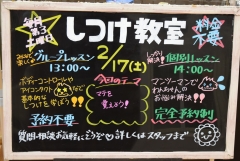 毎月
第3
土曜日
しつけ教室
料金
不要
グループレッスン
13:00〜
2/17(土)
しっかり
解決!
個別レッスン
14:00〜
ボディーコントロールや
アイコンタクト
基本的な
しつけを学ぼう!!
今回のテーマ
マテを
覚えよう!
マンツーマンで
わんちゃんの
お悩み解決!!
予約不要
完全予約制
質問・相談お気軽にどうぞ♡詳しくはスタッフまで